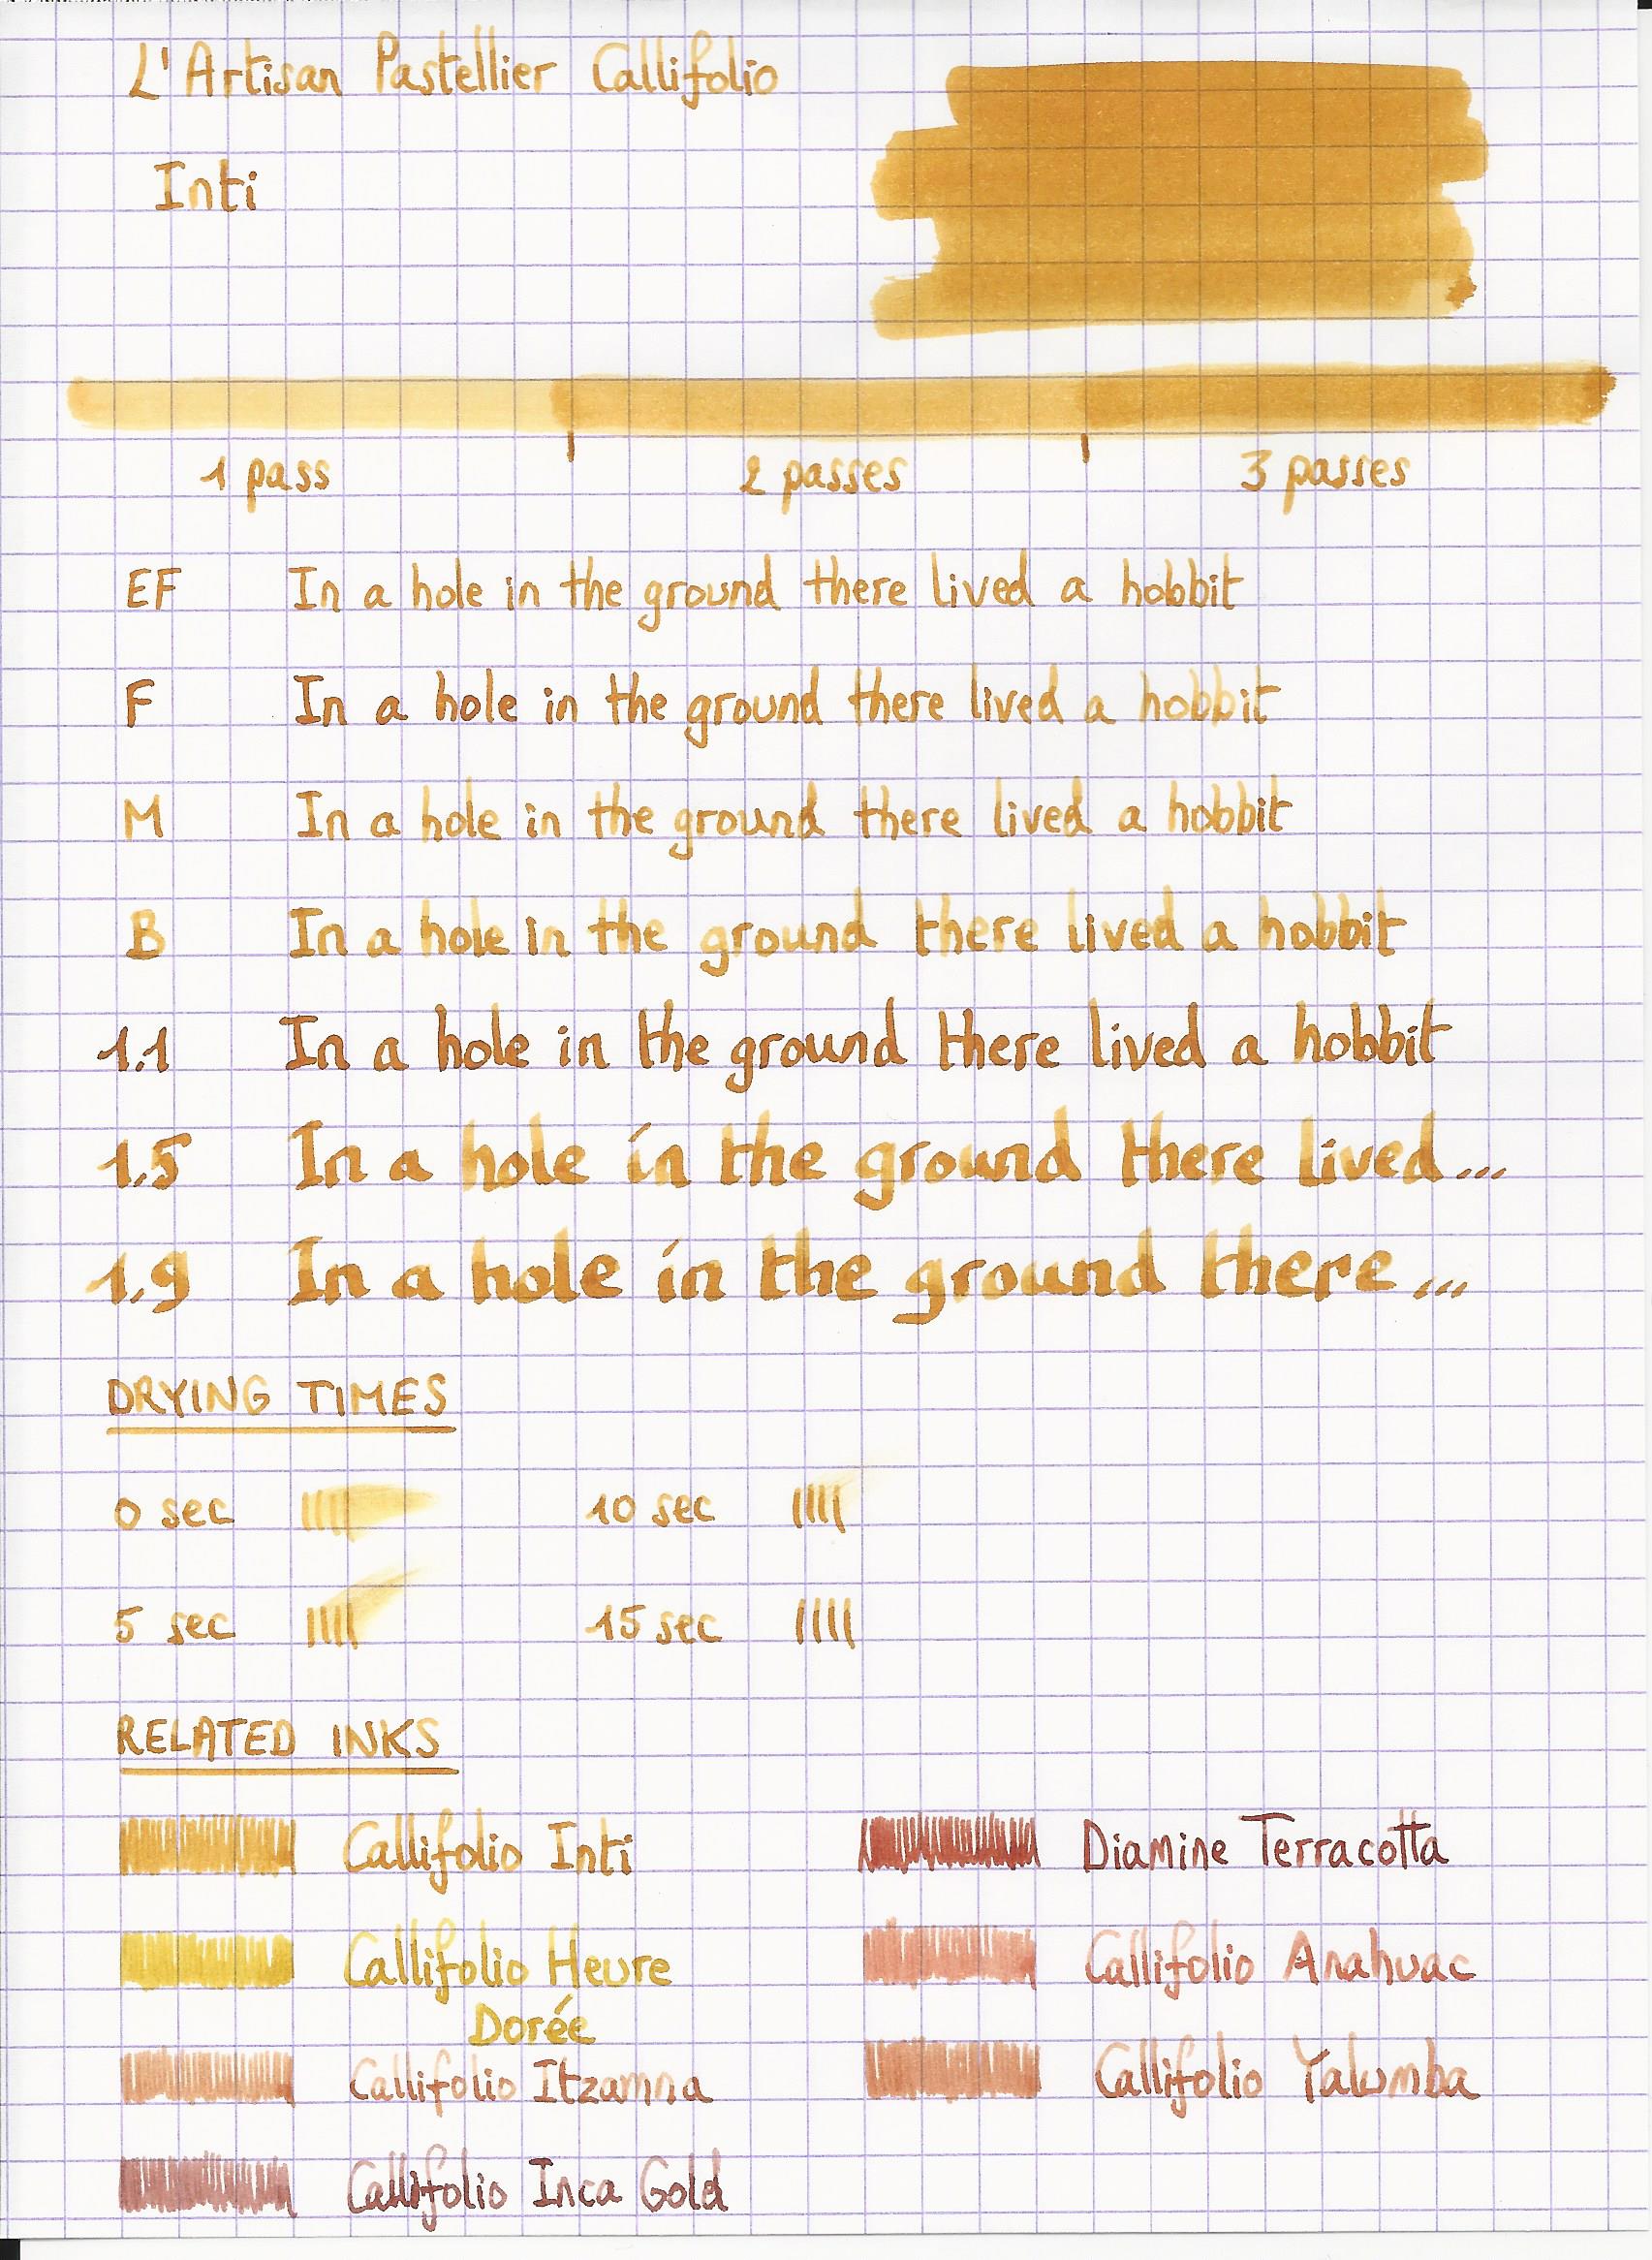 L'Artisan Pastellier Callifolio
Inti
1 pass 2 passes 3 passes
EF In a hole in the ground there lived a hobbit
F In a hole in the ground there lived a hobbit
M In a hole in the ground there lived a hobbit
B In a hole in the ground there lived a hobbit
1.1 In a hole in the ground there lived a hobbit
1.5 In a hole in the ground there lived...
1.9 In a hole in the ground there...
DRYING TIMES
0 sec 10 sec
5 sec 15 sec
RELATED INKS
Callifolio Inti Diamine Terracotta
Callifolio Heure Callifolio Anahuac
Dorée
Callifolio Itzamna Callifolio Yalumba
Callifolio Inca Gold